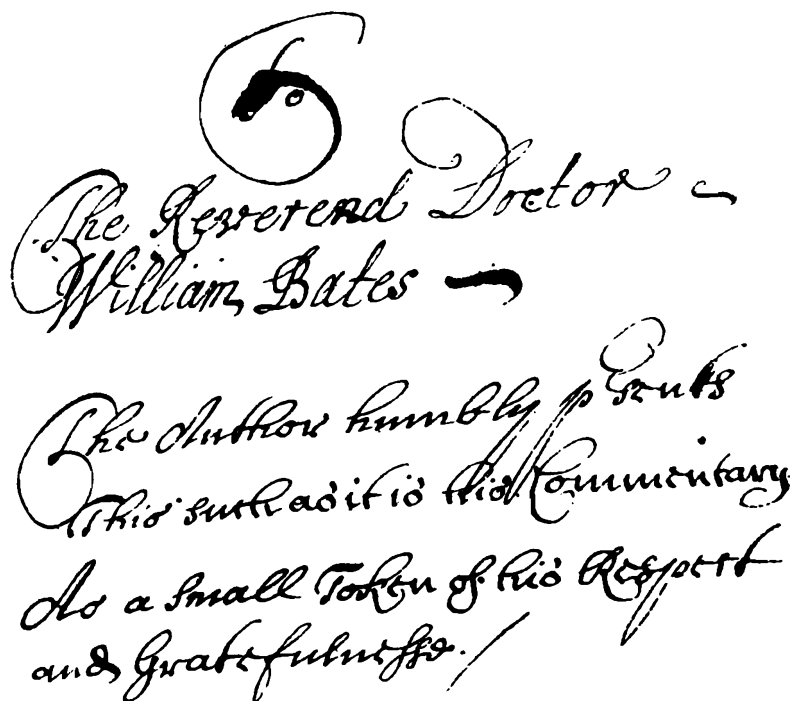 To
The Reverend Doctor
William Bates
The Author humbly psents
This such as it is his Commentary
As a small Token of his Respect
and Gratefulnesse.